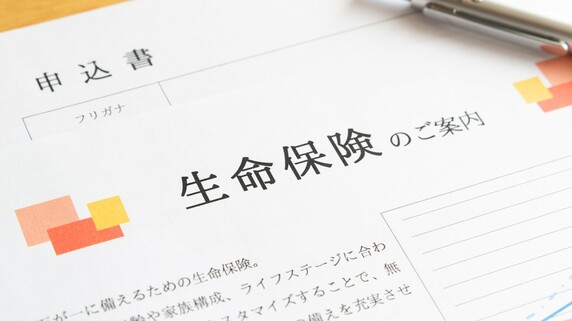 申込書
フリガナ
生命保険のご案内
万が一に備えるための生命保険。
年齢や家族構成、ライフステージに合わ
スタマイズすることで、無
の備えを充実させ